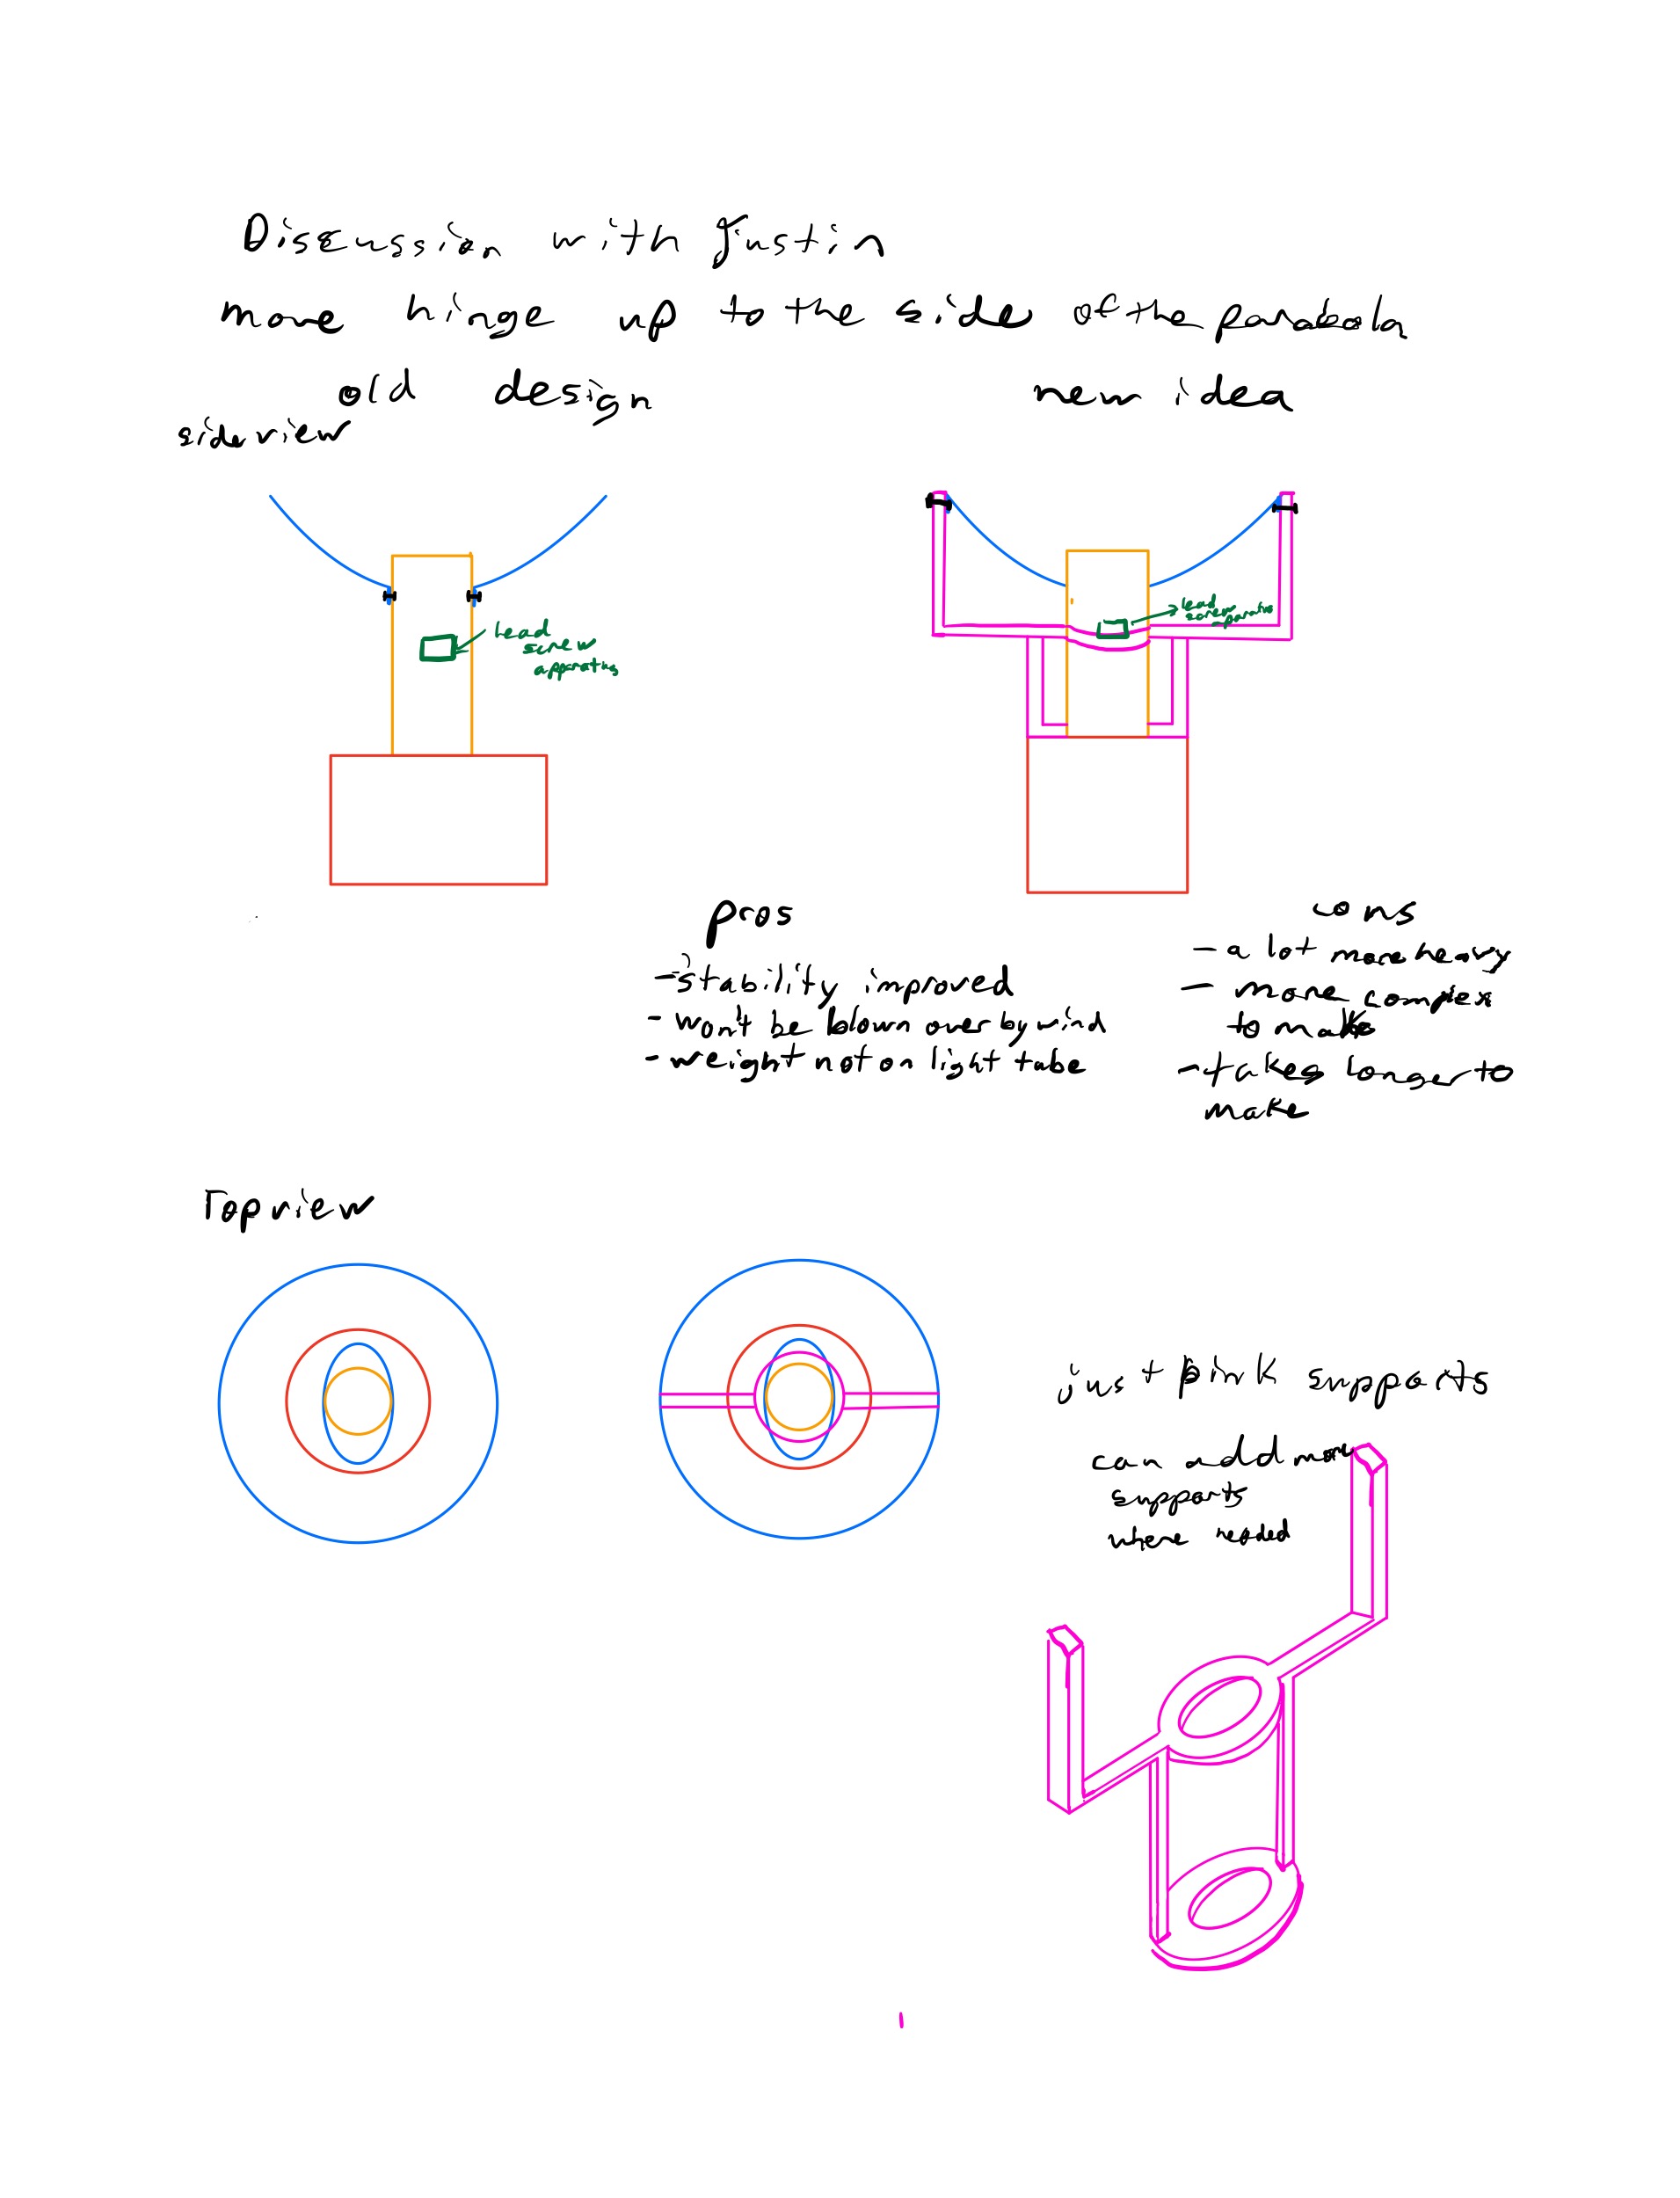 Discussion with Justin
move hinge up to the side of the parabola
old design
new idea
side view
Lead
screw
apparatus
lead
screw
apparatus
pros
- stability improved
- won't be blown over by wind
- weight not on light tube
cons
- a lot more heavy
- more complex
to make
- takes longer to
make
Top view
just pink supports
can add more
supports
where needed